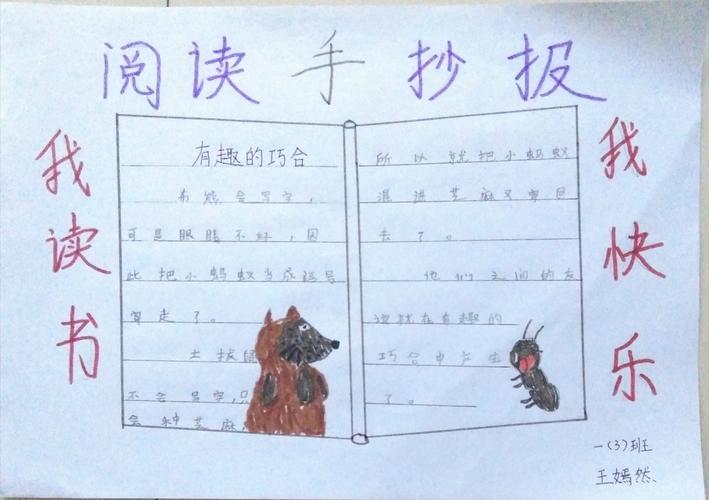 阅读手抄报
我读书
有趣的巧合
布熊会写字，
可是眼睛不好，因
此把小蚂蚁当成逗号
寄走了。
土拨鼠
不会写字，只
会种芝麻，
所以就把小蚂蚁
混进芝麻又寄回
去了。
他们之间的友
谊就在有趣的
巧合中产生
了。
我快乐
一（3）班
王嫣然